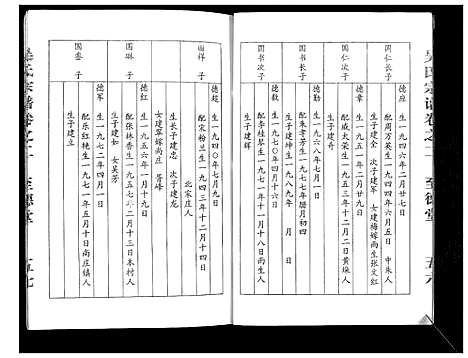 吴氏宗谱卷之十一 至德堂 五六
国仁长子
德应 生一九四六年二月廿七日
配周万英生一九四四年六月五日 中朱人
生子建全 次子建军 女建梅嫁尚庄张文红
国仁次子
德章 生一九五一年二月廿九日
配成大荣生一九五三年十二月二日黄垛人
生子建奇
国书长子
德勤 生一九六八年七月一日
配朱孝芳生一九七七年腊月初四
生子建坤生一九八九年 月 日
国书次子
德钦 生一九七〇年四月十六日
配李桂琴生一九七一年十一月十八日南生人
生子建辉
国祥子
德超 生一九四〇年七月九日
配宋粉兰生一九四三年十二月十四日
北宋庄人
生长子建忠 次子建龙
女建翠嫁尚庄 晋峰
国琳子
德红 生一九五六年一月十九日
配张林香生一九五七年二月十三日本村人
生子建如 女美芳
国銮子
德军 生一九七二年四月一日
配乐红艳生一九七一年五月十日尚庄镇人
生子建立
吴氏宗谱卷之十一 至德堂 五七